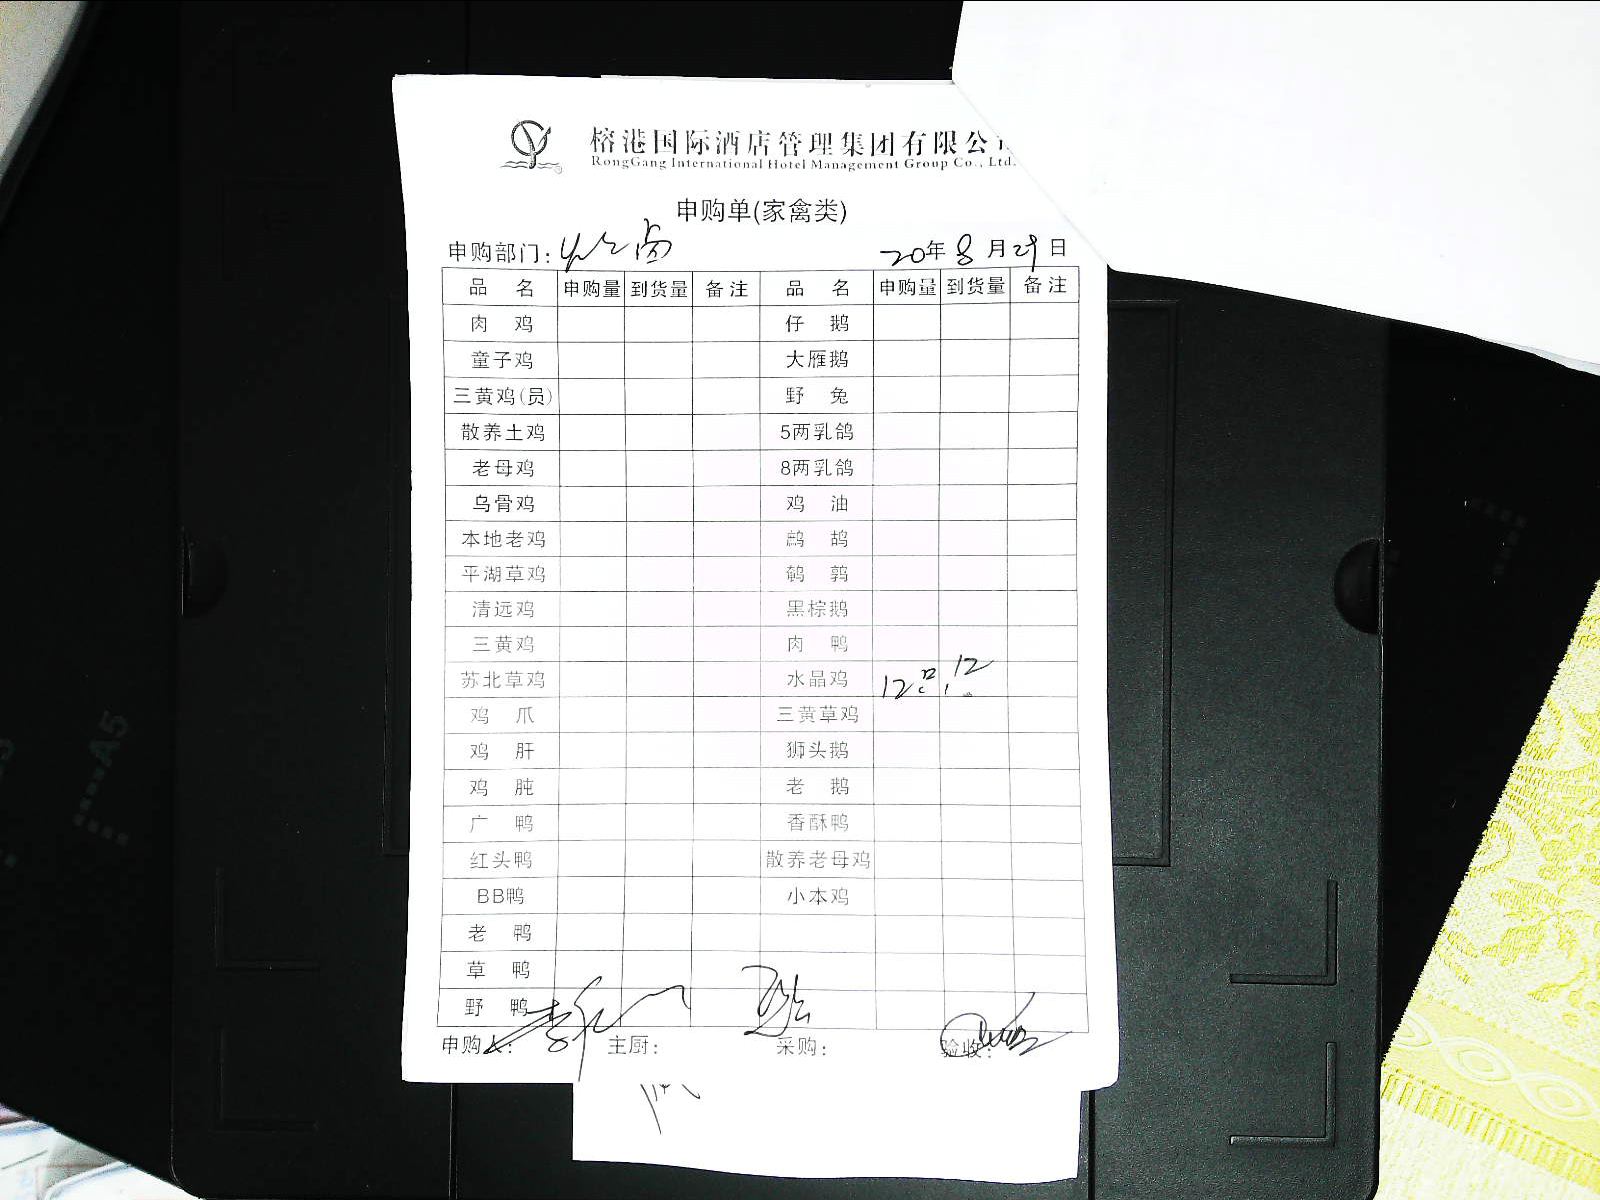 榕港国际酒店管理集团有限公
RongGang International Hotel Management Group Co., Ltd.
申购单(家禽类)
申购部门:
20年8月29日
品 名 申购量 到货量 备注 品 名 申购量 到货量 备注
肉 鸡 仔 鹅
童子鸡 大雁鹅
三黄鸡(员) 野 兔
散养土鸡 5两乳鸽
老母鸡 8两乳鸽
乌骨鸡 鸡 油
本地老鸡 鹧 鸪
平湖草鸡 鹌 鹑
清远鸡 黑棕鹅
三黄鸡 肉 鸭
苏北草鸡 水晶鸡 12只 12
鸡 爪 三黄草鸡
鸡 肝 狮头鹅
鸡 肫 老 鹅
广 鸭 香酥鸭
红头鸭 散养老母鸡
BB鸭 小本鸡
老 鸭
草 鸭
野 鸭
申购人: 主厨: 采购: 验收:
A5